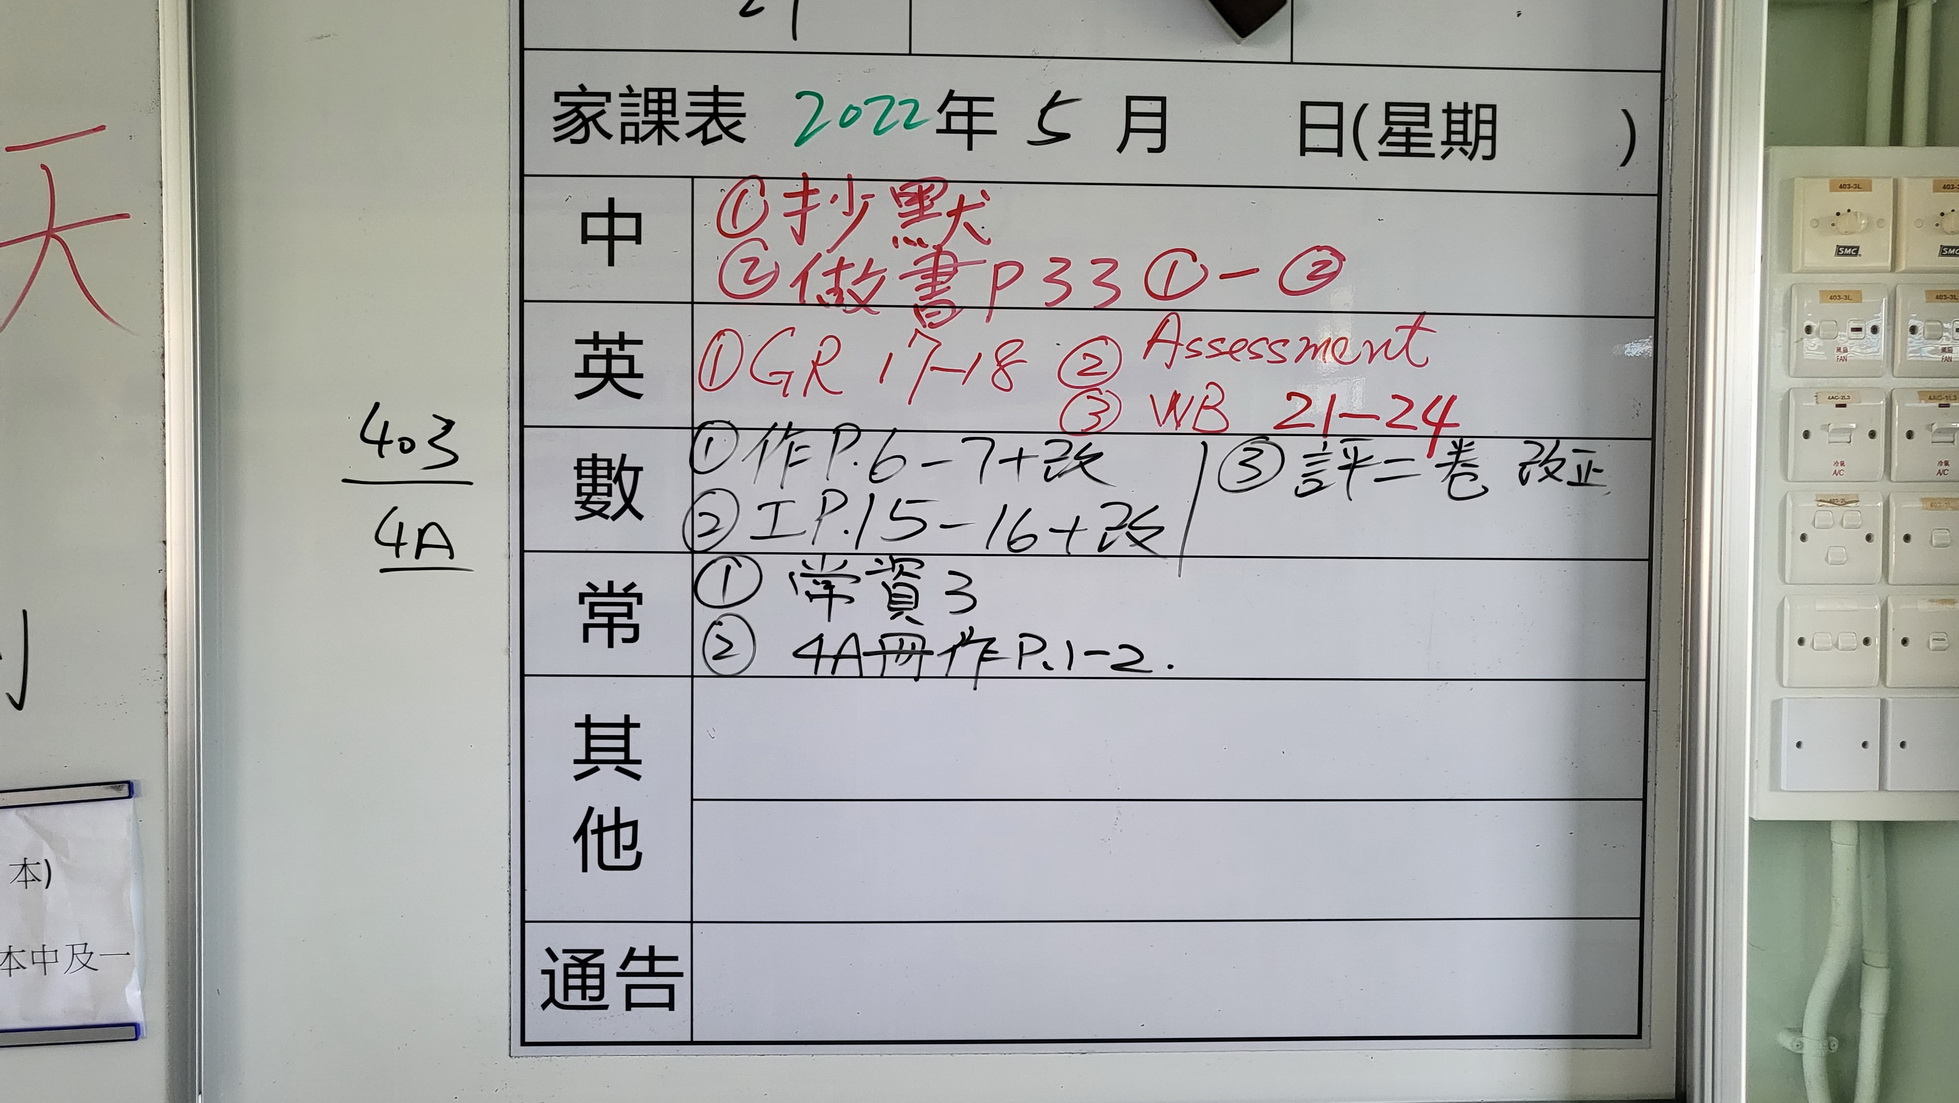 家課表 2022年 5 月 日(星期 )
中
①抄默
②做書P33①-②
英
①GR 17-18 ② Assessment
③ WB 21-24
數
①作P.6-7+改 ③評二卷 改正
②工P.15-16+改
常
① 常資3
② 4A冊作P.1-2.
其他
通告
403
4A
天
本)
本中及一
403-3L
403-3L
SMC
SMC
403-3L
403-3L
風扇
FAN
風扇
FAN
4AC-2L3
冷氣
A/C
冷氣
A/C